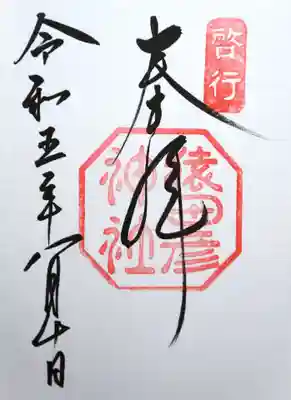 啓行
奉拝
猿田彦
神社
令和五年八月十日